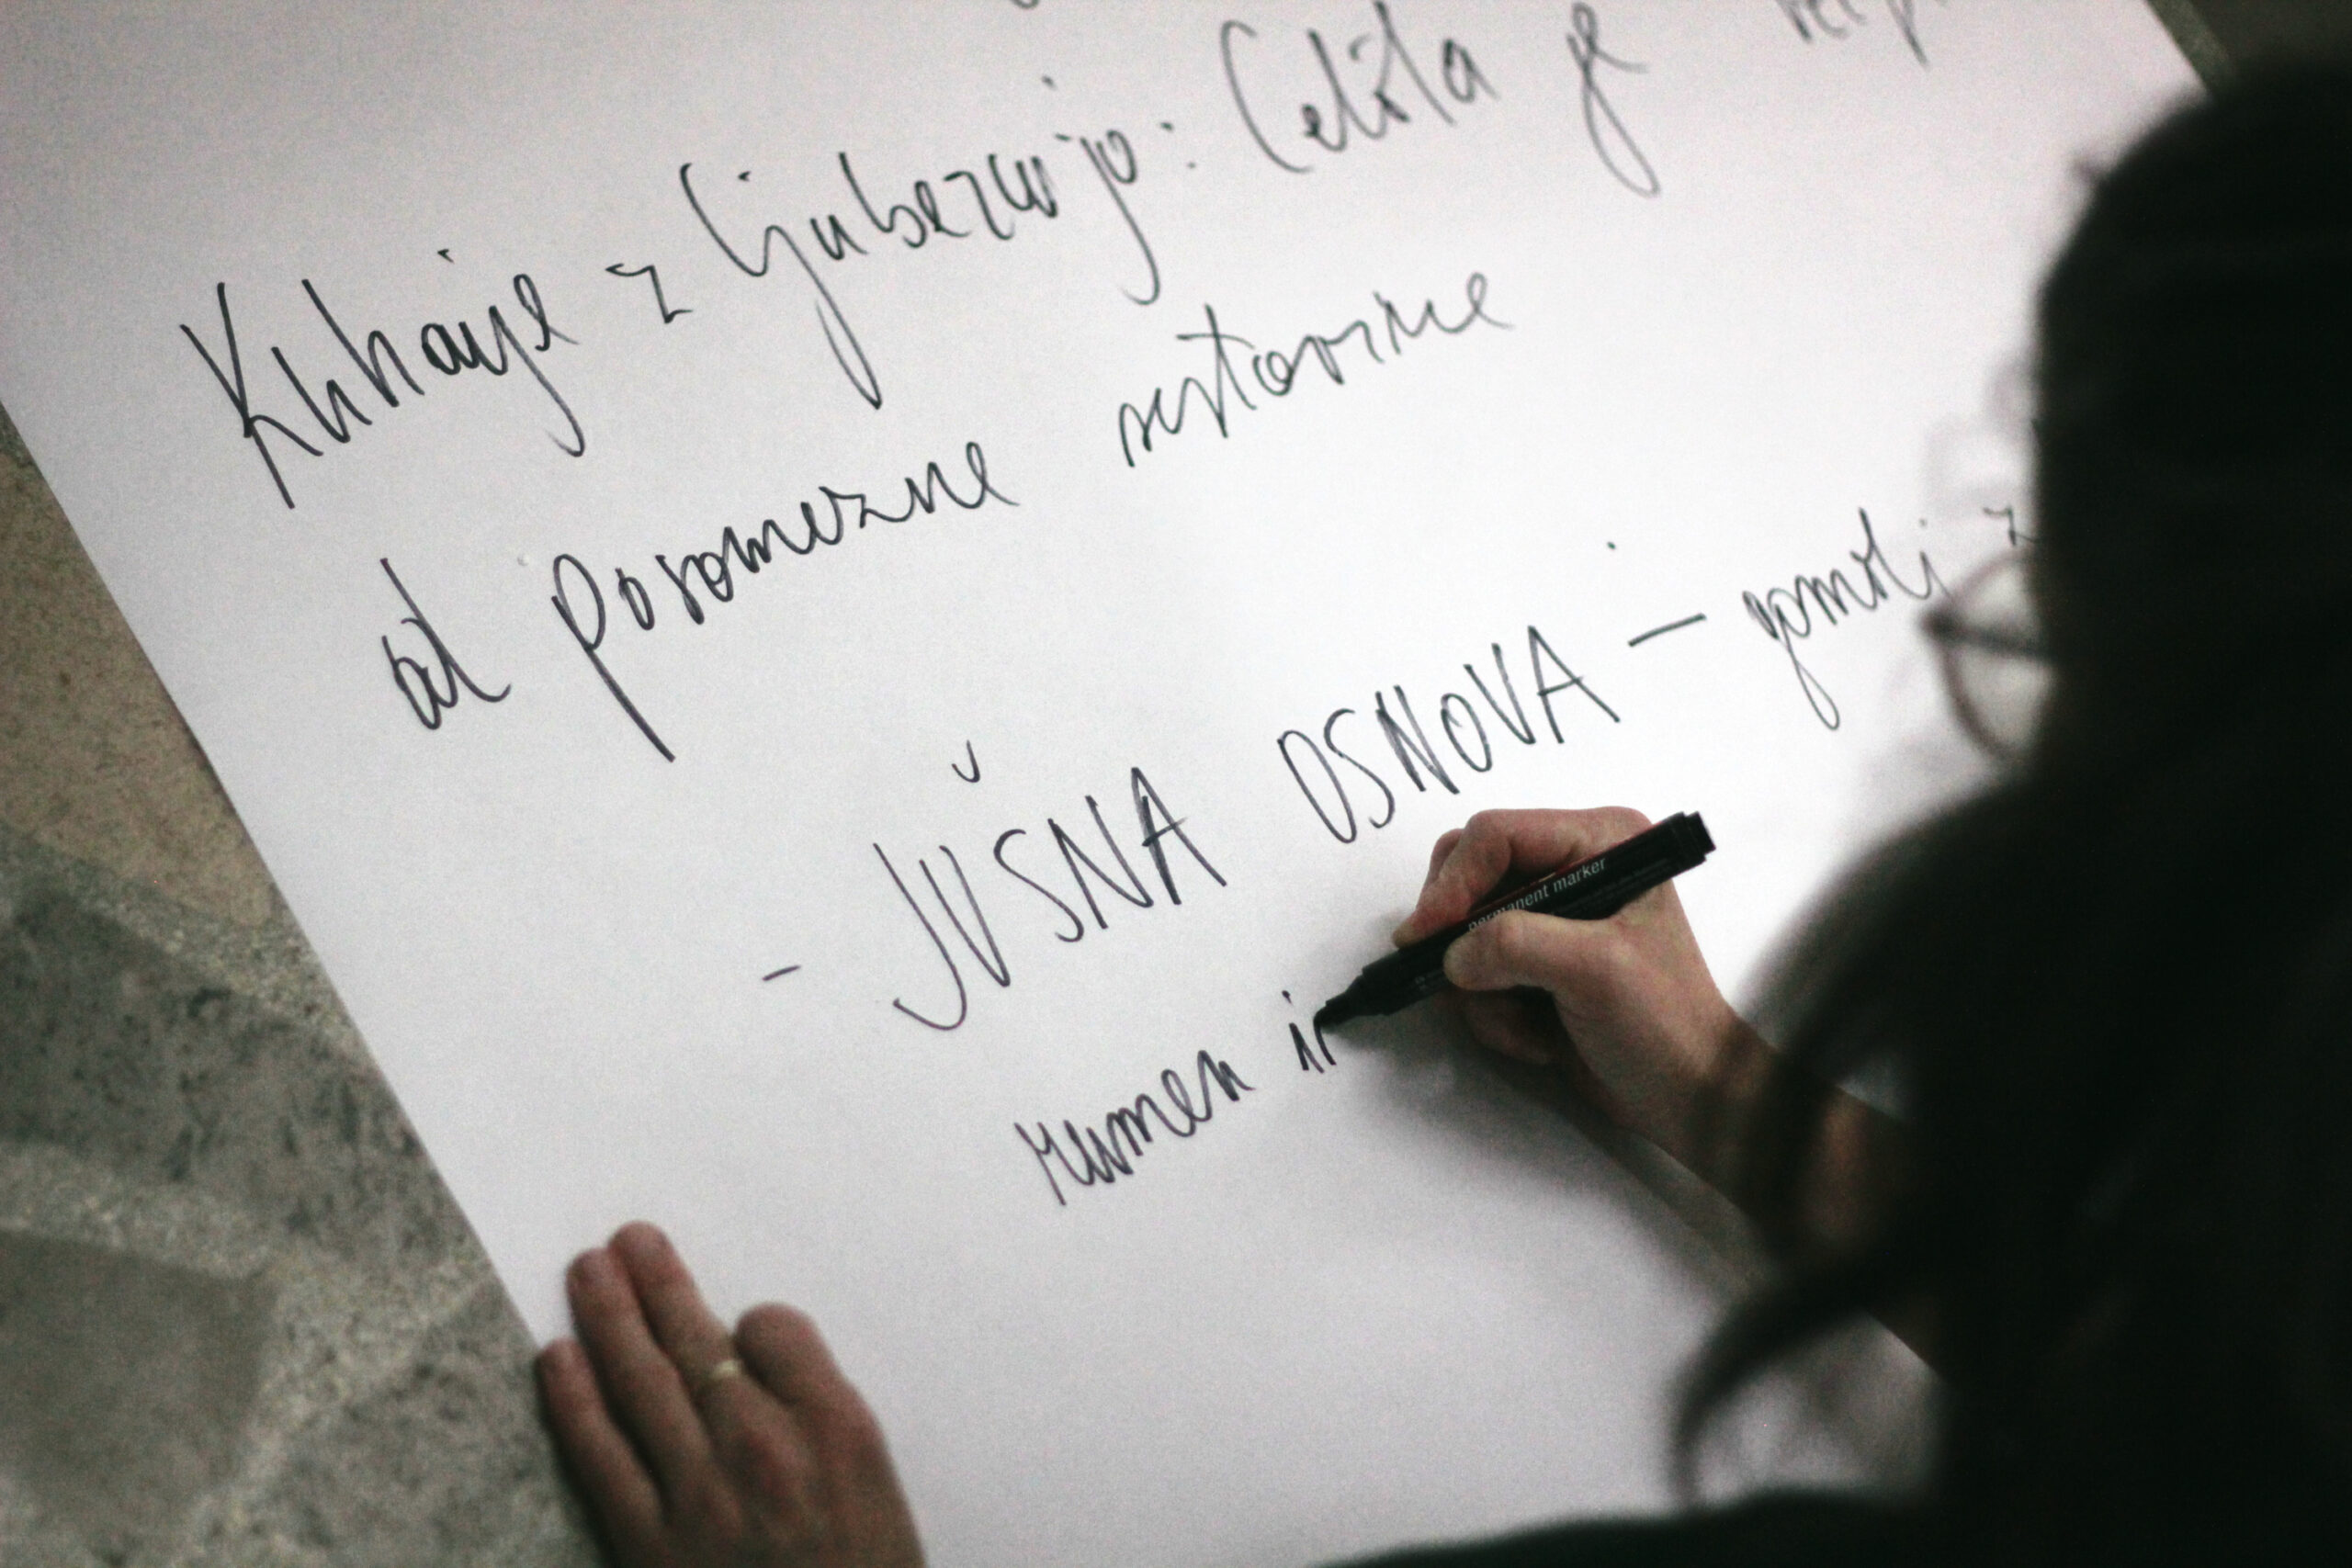 Kuhanje z ljubeznijo: Celota je več
od posamezne sestavine
- JUŠNA OSNOVA - gomolj z
rumen in
permanent marker